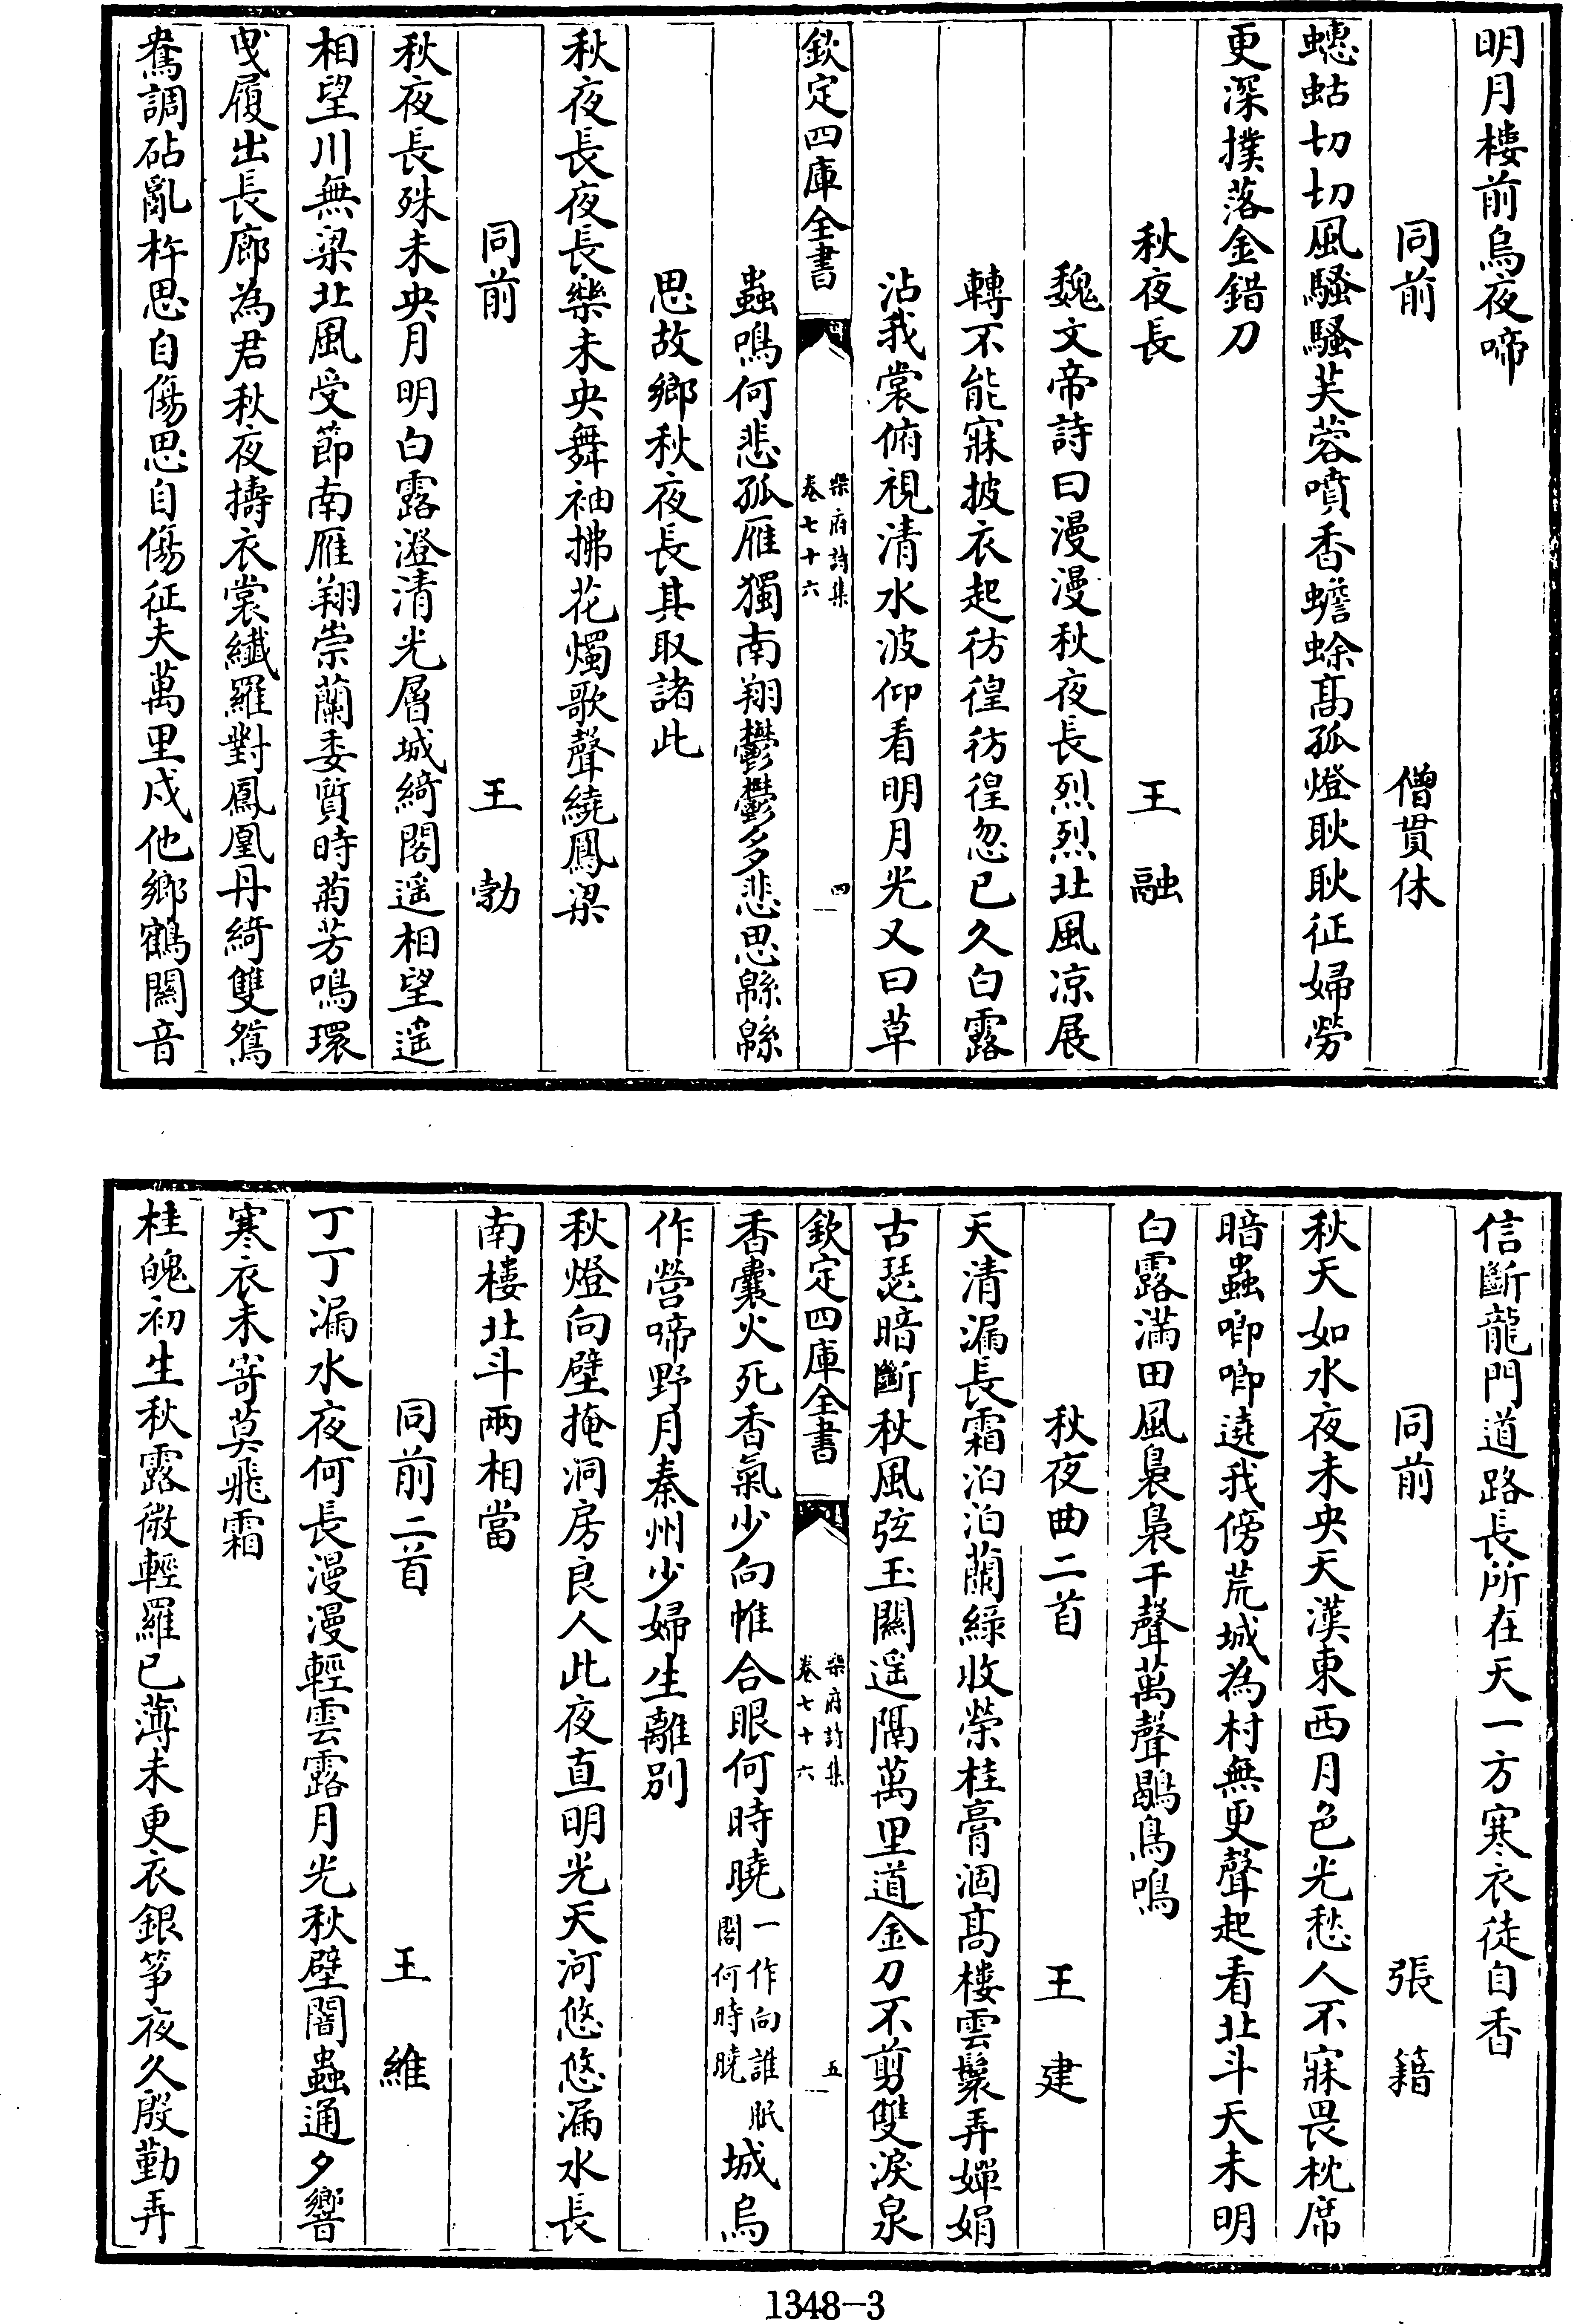 明月樓前烏夜啼
同前　僧貫休
蟪蛄切切風騷騷芙蓉噴香蟾蜍髙孤燈耿耿征婦勞
更深撲落金錯刀
秋夜長　王融
魏文帝詩曰漫漫秋夜長烈烈北風涼展
轉不能寐披衣起彷徨彷徨忽已久白露
沾我裳俯視清水波仰看明月光又曰草
欽定四庫全書　樂府詩集卷七十六　四
蟲鳴何悲孤雁獨南翔鬱鬱多悲思緜緜
思故鄉秋夜長其取諸此
秋夜長夜長樂未央舞袖拂花燭歌聲繞鳳梁
同前　王勃
秋夜長殊未央月明白露澄清光層城綺閣遥相望遥
相望川無梁北風受節南雁翔崇蘭委質時菊芳鳴環
曳履出長廊為君秋夜擣衣裳纎羅對鳳凰丹綺雙鴛
鴦調砧亂杵思自傷思自傷征夫萬里戍他鄉鶴闗音
信斷龍門道路長所在天一方寒衣徒自香
同前　張籍
秋天如水夜未央天漢東西月色光愁人不寐畏枕席
暗蟲唧唧遶我傍荒城為村無更聲起看北斗天未明
白露滿田風裊裊千聲萬聲鶡鳥鳴
秋夜曲二首　王建
天清漏長霜泊泊蘭綠收榮桂膏涸髙樓雲鬟弄嬋娟
古瑟暗斷秋風弦玉闗遥隔萬里道金刀不剪雙淚泉
欽定四庫全書　樂府詩集卷七十六　五
香囊火死香氣少向帷合眼何時曉一作向誰眠閤何時曉城烏
作營啼野月秦州少婦生離別
秋燈向壁掩洞房良人此夜直明光天河悠悠漏水長
南樓北斗兩相當
同前二首　王維
丁丁漏水夜何長漫漫輕雲露月光秋壁闇蟲通夕響
寒衣未寄莫飛霜
桂魄初生秋露微輕羅已薄未更衣銀筝夜久殷勤弄
1348-3